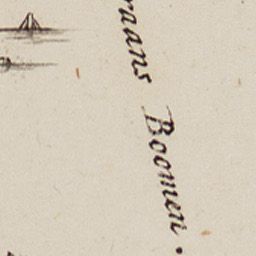 raans Boomen.